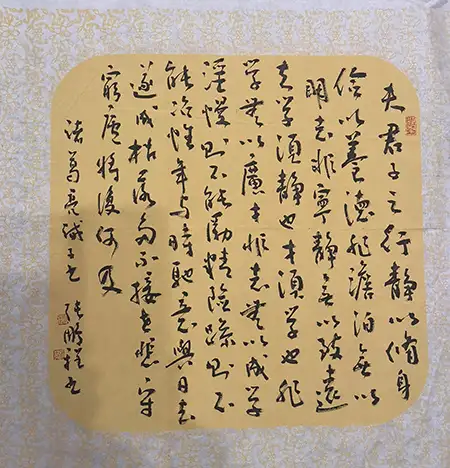 夫君子之行靜以脩身
儉以養德非澹泊無以
明志非寧靜無以致遠
夫學須靜也才須學也非
學無以廣才非志無以成學
淫慢則不能勵精險躁則不
能冶性年与時馳意與日去
遂成枯落多不接世悲守
窮廬將復何及
諸葛亮誡子書 張鵬程書